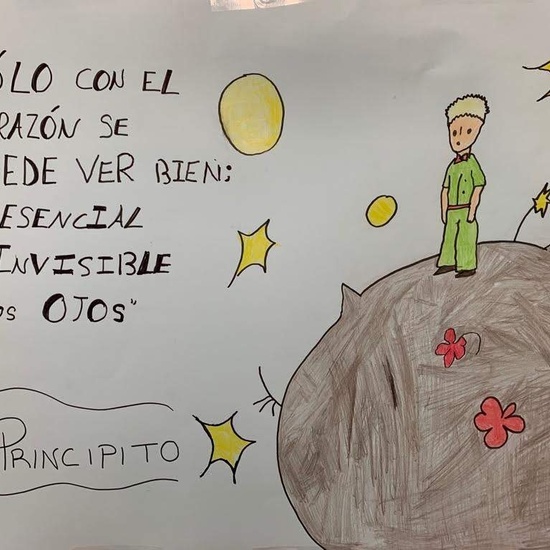 ÓLO CON EL
RAZÓN SE
EDE VER BIEN;
ESENCIAL
INVISIBLE
OS OJOS"
PRINCIPITO